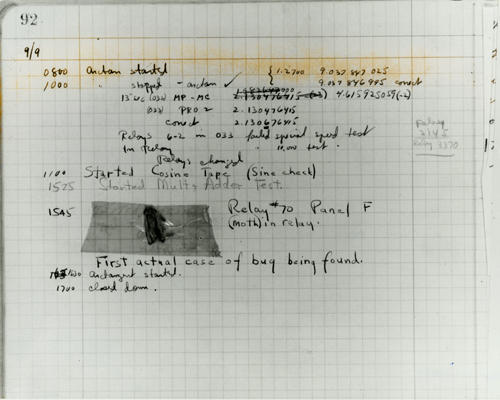 92
9/9
0800 arctan started { 1.2700 9.037 847 025
1000 " stopped - arctan ✓ 9.037 846 995 correct
13"UC (032) MP - MC 2.130476415 (-3) 4.615925059(-2)
(033) PRO 2 2.130476415
correct 2.130676415
Relays 6-2 in 033 failed special speed test
In Relay " 10,000 test.
Relay 3145
Relay 3370
Relays changed
1100 Started Cosine Tape (Sine check)
1525 Started Multi Adder Test.
1545 Relay #70 Panel F
(Moth) in relay.
First actual case of bug being found.
1630 arctangent started.
1700 closed down.